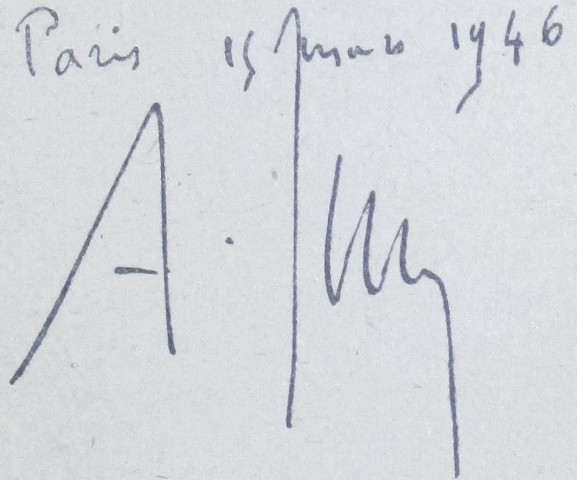 Paris 15 mars 1946
A.